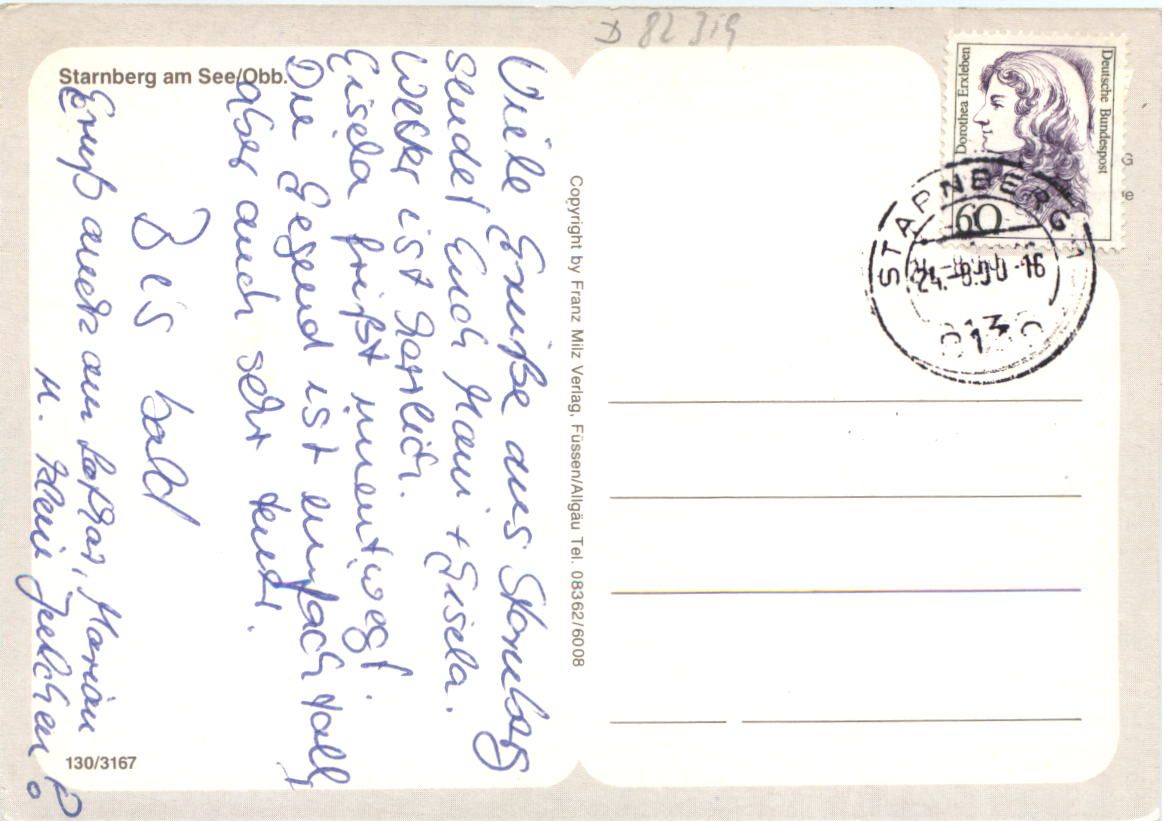 D 82 319
Starnberg am See/Obb.
Viele Grüße aus Starnberg
sendet Euch Mami + Gisela.
Wetter ist herrlich.
Gisela frißt immentweg!
Die Gegend ist einfach toll,
aber auch sehr teuer.
Bis bald
Gruß auch an Lothar, Marion
u. klein Julchen!
130/3167
Copyright by Franz Milz Verlag, Füssen/Allgäu Tel. 08362/6008
Dorothea Erxleben
Deutsche Bundespost
60
STARNBERG 1
24.-8.90-16
8130